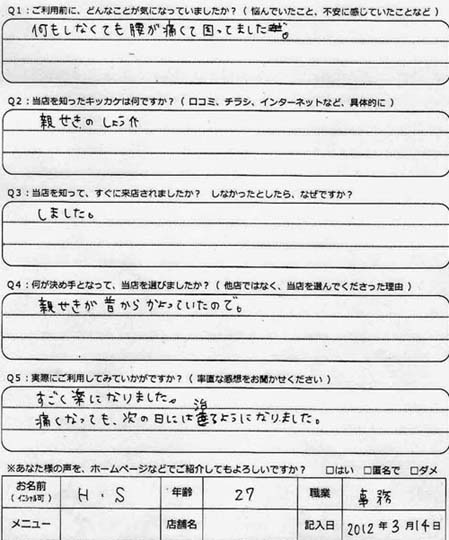 Q1：ご利用前に、どんなことが気になっていましたか？（ 悩んでいたこと、不安に感じていたことなど ）
何もしなくても腰が痛くて困ってました。
Q2：当店を知ったキッカケは何ですか？（ 口コミ、チラシ、インターネットなど、具体的に ）
親せきのしょう介
Q3：当店を知って、すぐに来店されましたか？ しなかったとしたら、なぜですか？
しました。
Q4：何が決め手となって、当店を選びましたか？（ 他店ではなく、当店を選んでくださった理由 ）
親せきが昔からかよっていたので。
Q5：実際にご利用してみていかがですか？（ 率直な感想をお聞かせください ）
すごく楽になりました。
痛くなっても、次の日には治るようになりました。
※あなた様の声を、ホームページなどでご紹介してもよろしいですか？ □はい □匿名で □ダメ
お名前（イニシャル可） H.S 年齢 27 職業 事務
メニュー 店舗名 記入日 2012年3月14日